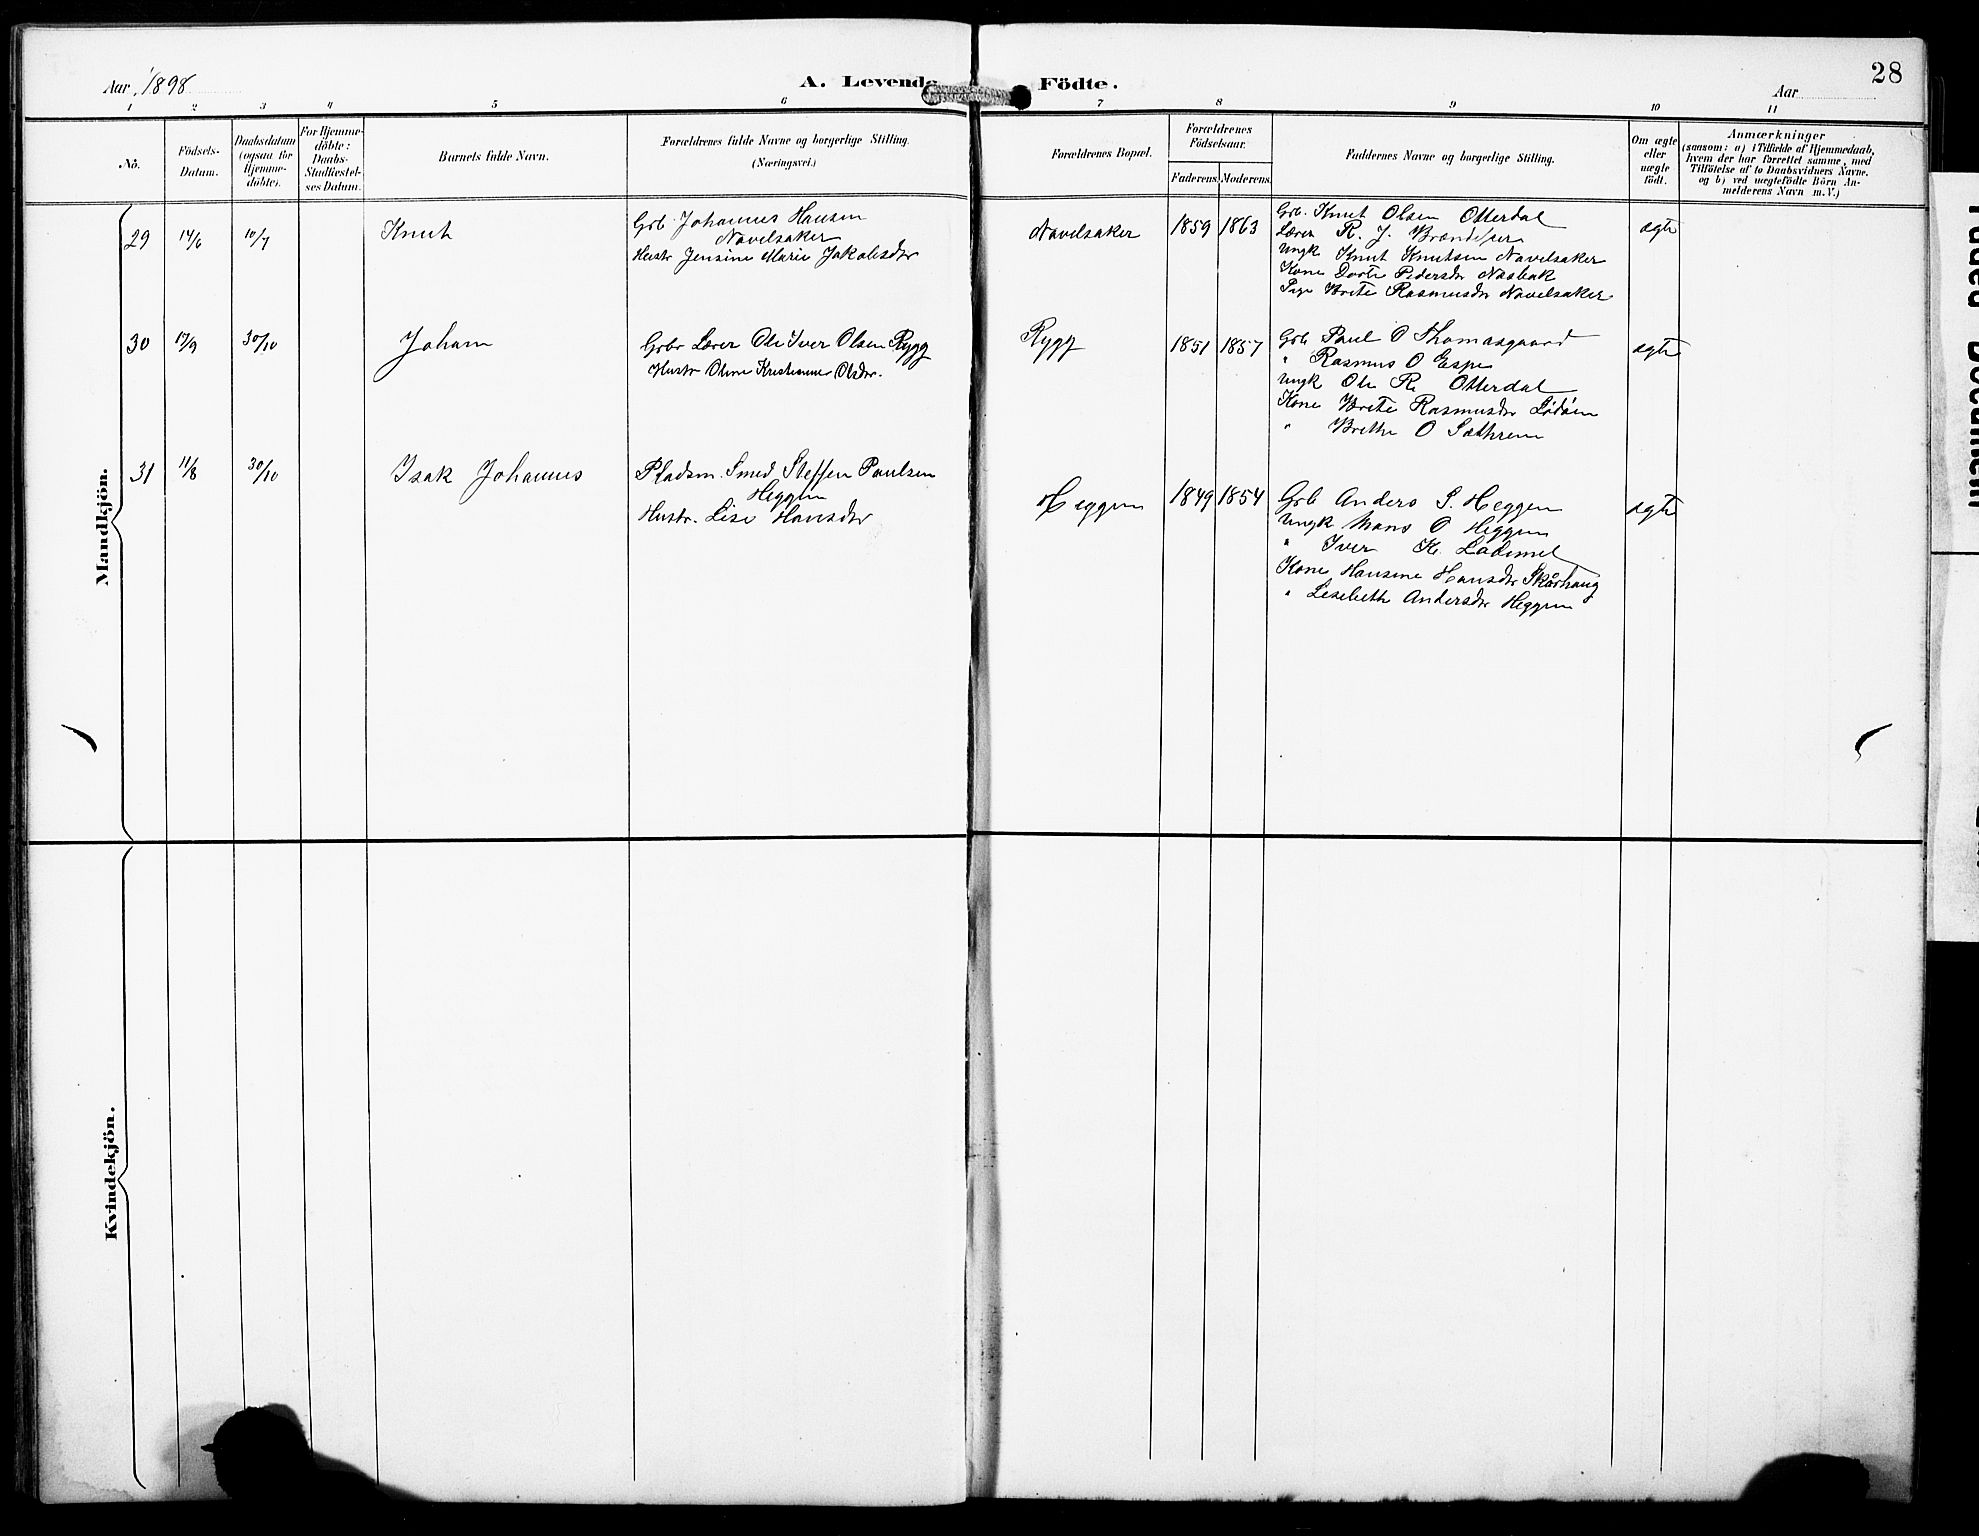 Aar 1898
A. Levende Födte.
28
Aar
1 2 3 4 5 6 7 8 9 10 11
No.
Födsels-
Datum.
Daabsdatum
(ogsaa for
Hjemme-
döbte).
For Hjemme-
döbte:
Daabs-
Stadfæstel-
ses Datum.
Barnets fulde Navn.
Forældrenes fulde Navne og borgerlige Stilling.
(Næringsvei.)
Forældrenes Bopæl.
Forældrenes
Födselsaar.
Faderens. Moderens.
Faddernes Navne og borgerlige Stilling.
Om ægte
eller
uægte
født.
Anmærkninger
(saasom: a) i Tilfælde af Hjemmedaab,
hvem der har forrettet samme, med
Tilföielse af to Daabsvidners Navne.
og b) ved uægtefödte Börn An-
melderens Navn m. V.)
Mandkjön.
29 14/6 10/7 Knut
Grb. Johannes Hansen
Navelsaker
Hustr Jensine Marie Jakobsdr
Navelsaker 1859 1863
Grb. Knut Olsen Otterdal
Lærer R. J.
Ungk Knut Knutsen Navelsaker
Kone Dorte Pedersdr Nosbak
Pige Brite Rasmusdr Navelsaker
ægte
30 17/9 30/10 Johan
Grbr Lærer Ole Iver Olsen Rygg
Hustr Oline Kristianne Olsdr.
Rygg 1851 1857
Grb Paul O Thomasgaard
" Rasmus O Espe
Ungk Ole R. Otterdal
Kone Brite Rasmusdr Lødøen
" Brithe O Sæthren
ægte
31 11/8 30/10 Isak Johannes
Pladsm. Smed Steffen Paulsen
Heggen
Hustr. Lise Hansdr
Heggen 1849 1854
Grb Anders S. Heggen
Ungk Mons O Heggen
" Iver K. Lademel
Kone Hansine Hansdr Skårhaug
" Lisebeth Andersdr Heggen
ægte
Kvindekjön.